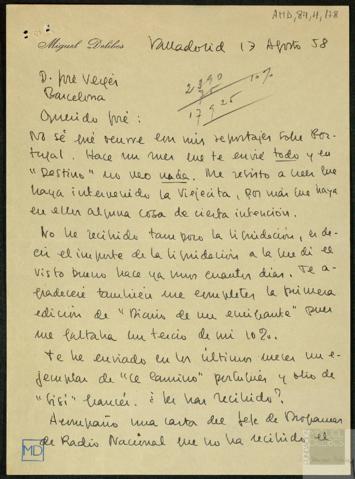 AMD,84,4,178
Miguel Delibes
Valladolid 17 Agosto 58
D. José Vergés
Barcelona
Querido José:
10%
No sé qué ocurre con mis reportajes sobre Por-
tugal. Hace un mes que te envié todo y en
"Destino" no veo nada. Me resisto a creer que
haya intervenido la Viejecita, por más que haya
en ellos alguna cosa de cierta intención.
No he recibido tampoco la liquidación, es de-
cir el importe de la liquidación a la que di el
visto bueno hace ya unos cuantos días. Te a-
gradeceré también me completes la primera
edición de "Diario de un emigrante" pues
me faltaba un tercio de mi 10%.
Te he enviado en los últimos meses un e-
jemplar de "El Camino" portugués y otro de
"Sisí" francés. ¿Los has recibido?
Acompaño una carta del Jefe de Programas
de Radio Nacional que no ha recibido el
MD